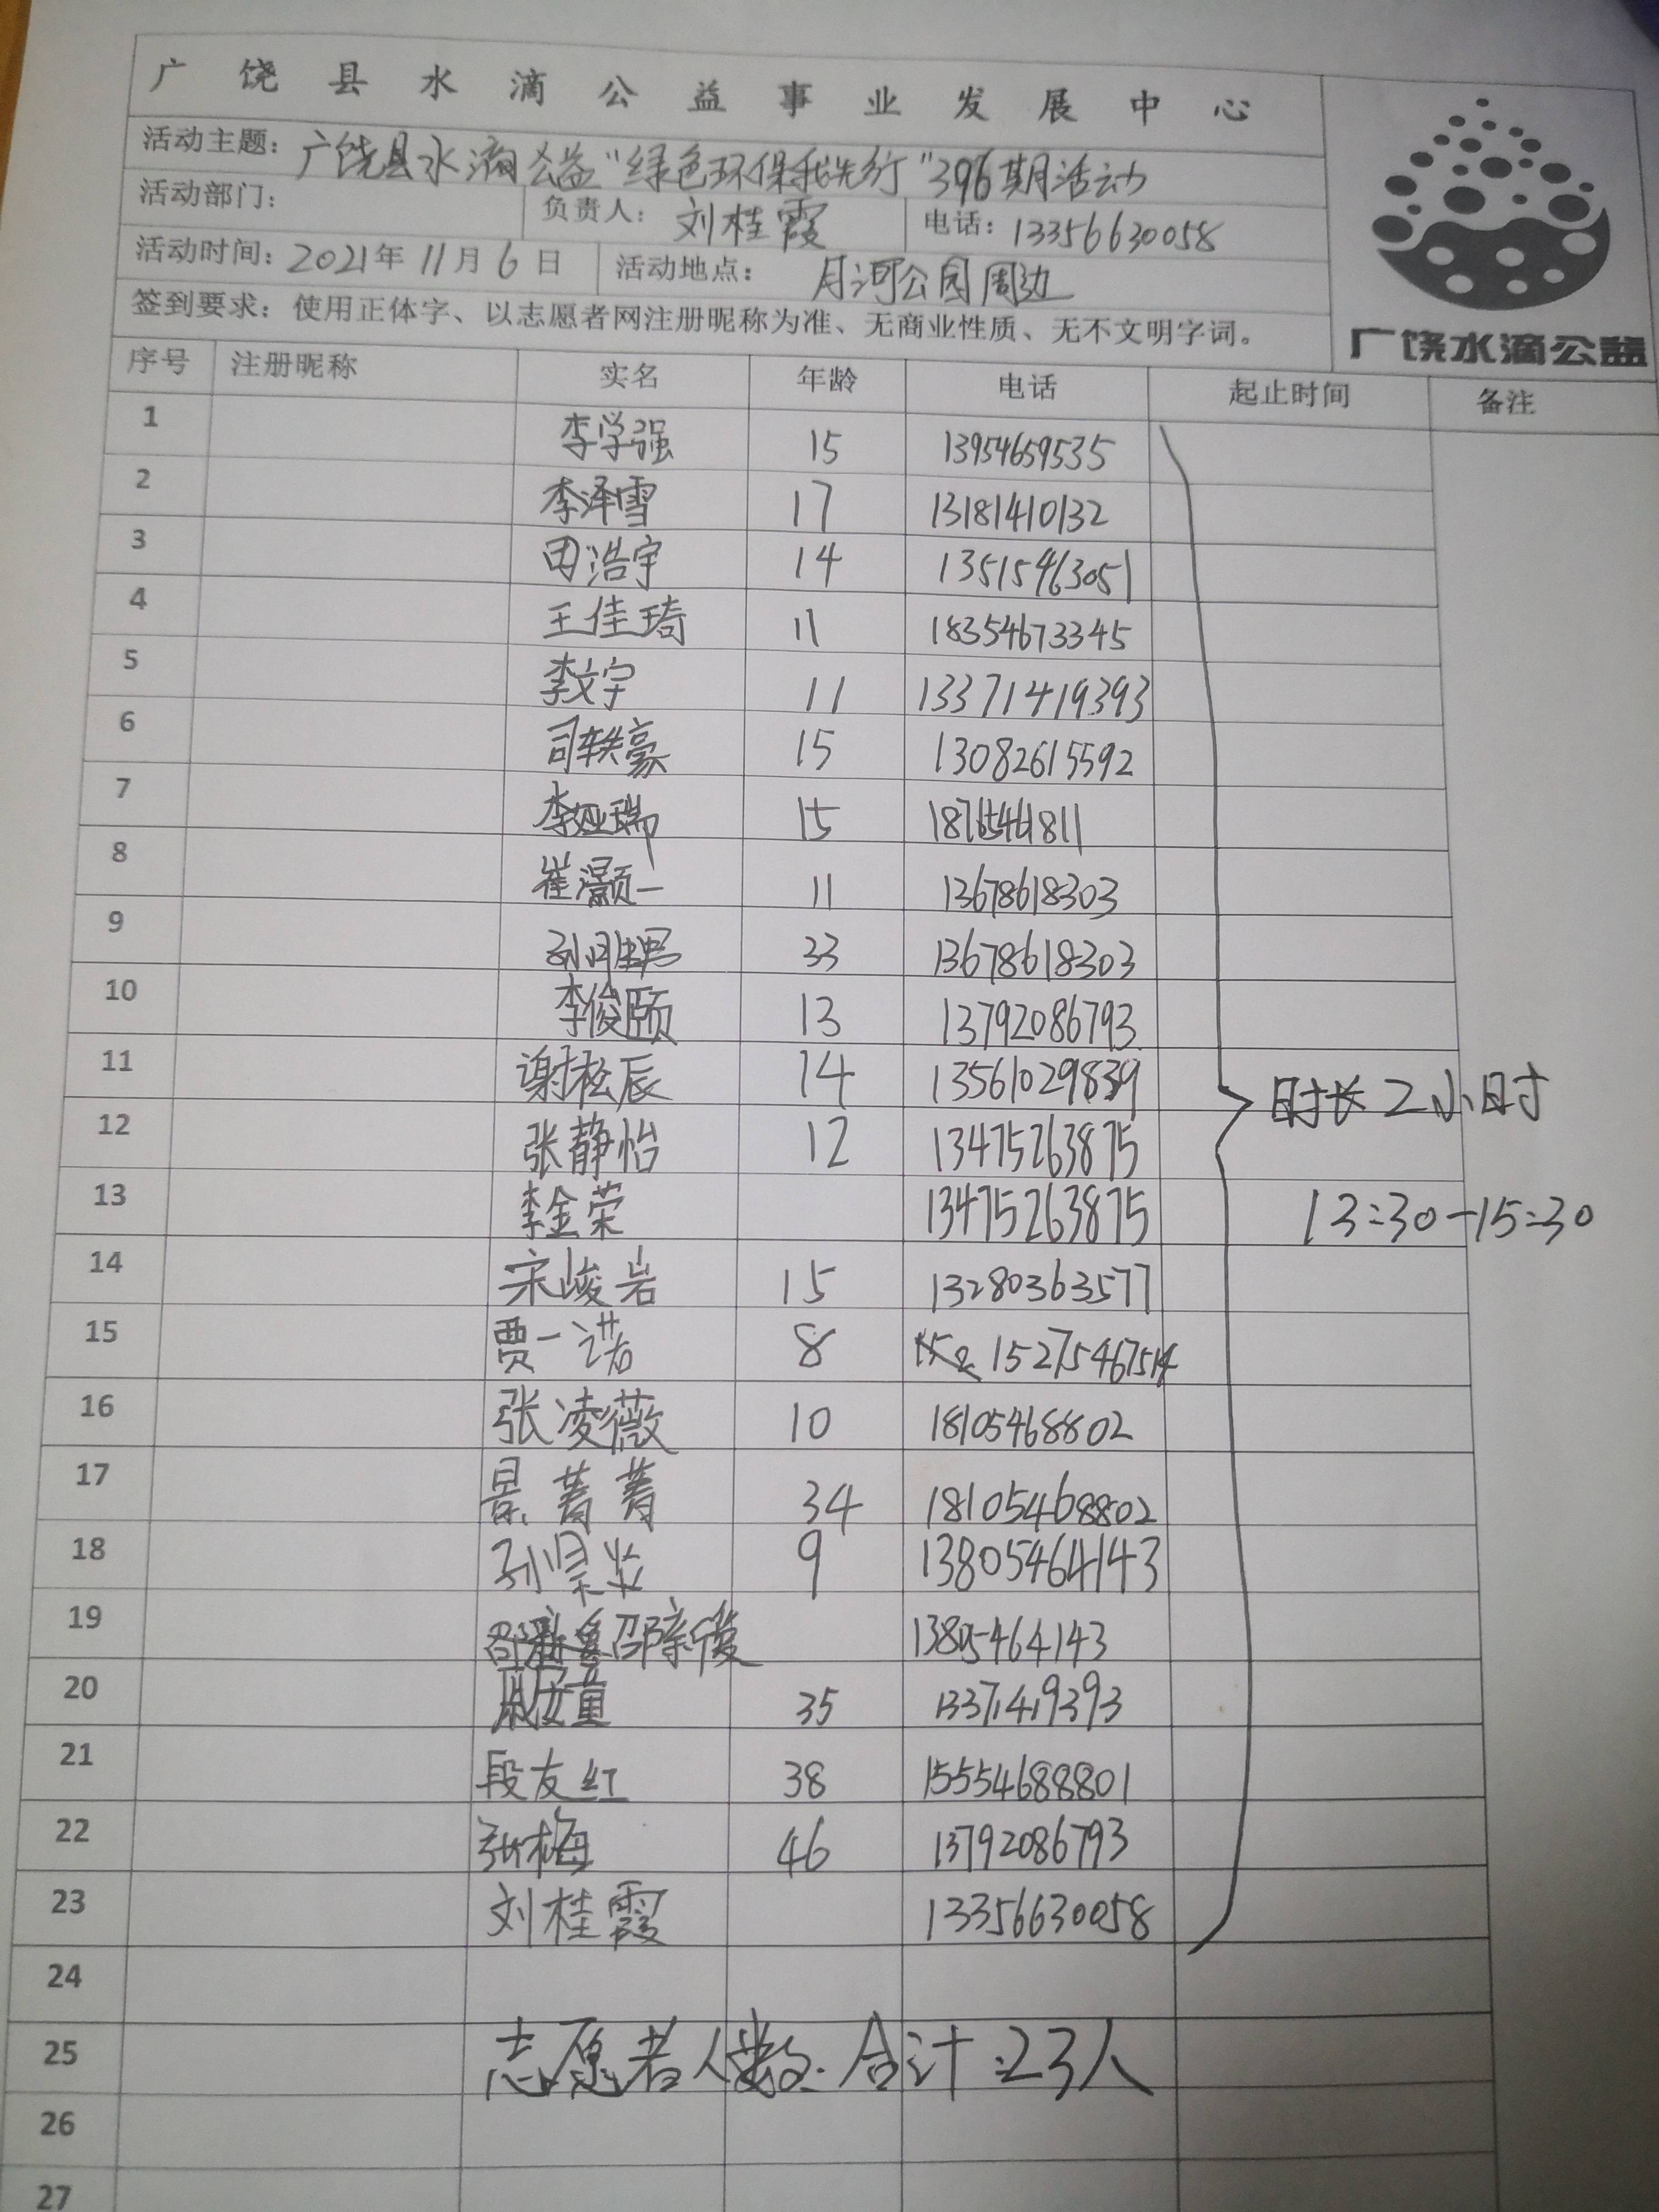 广饶县水滴公益事业发展中心
活动主题：广饶县水滴公益“绿色环保我先行”396期活动
活动部门： 负责人：刘桂霞 电话：13356630058
活动时间：2021年11月6日 活动地点：月河公园周边
签到要求：使用正体字、以志愿者网注册昵称为准、无商业性质、无不文明字词。
广饶水滴公益
序号 注册昵称 实名 年龄 电话 起止时间 备注
1 李学强 15 13954659535
2 李泽雪 17 13181410132
3 田浩宇 14 13515463051
4 王佳琦 11 18354673345
5 李文宇 11 13371419393
6 司轶豪 15 13082615592
7 李娅瑞 15
8 崔灏一 11 13678618303
9 33 13678618303
10 李俊颐 13 13792086793
11 谢松辰 14 13561029839
时长2小时
12 张静怡 12 13475263875
13 李金荣 13475263875
13:30-15:30
14 宋峻岩 15 13280363577
15 贾一诺 8 15275467514
16 张凌薇 10 18105468802
17 景菁菁 34 18105468802
18 孙昊炎 9 13805464143
19 13805464143
20 35 13371419393
21 段友红 38 15554688801
22 张梅 46 13792086793
23 刘桂霞 13356630058
24
25 志愿者人数合计:23人
26
27